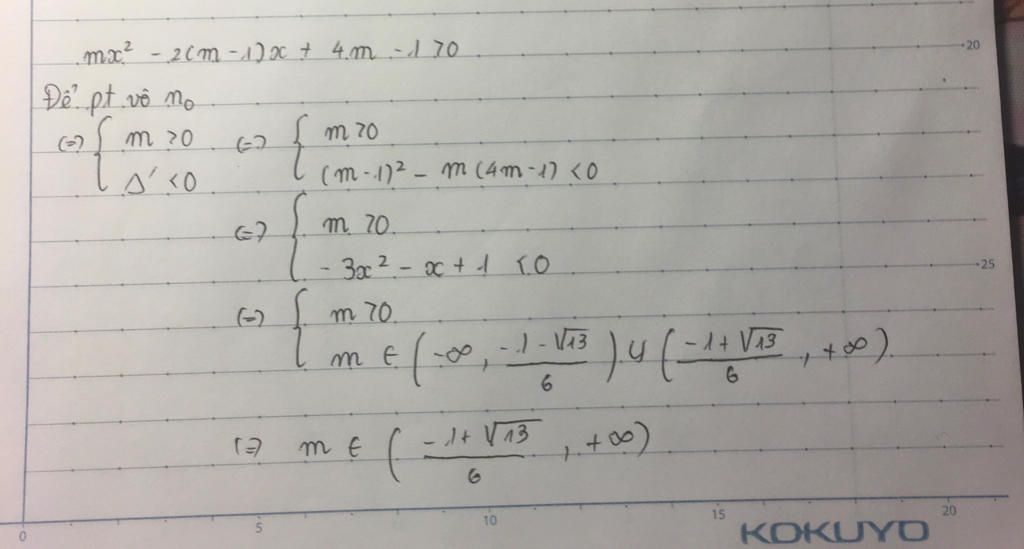 mx² - 2(m-1)x + 4m - 1 > 0
20
Để pt vô n₀
(=) { m > 0 (=) { m > 0
Δ' < 0 (m-1)² - m(4m-1) < 0
(=) { m > 0
- 3x² - x + 1 < 0
25
(=) { m > 0
m ∈ (-∞, (-1-√13)/6) ∪ ((-1+√13)/6, +∞)
(=) m ∈ ((-1+√13)/6, +∞)
0 5 10 15 20
KOKUYO